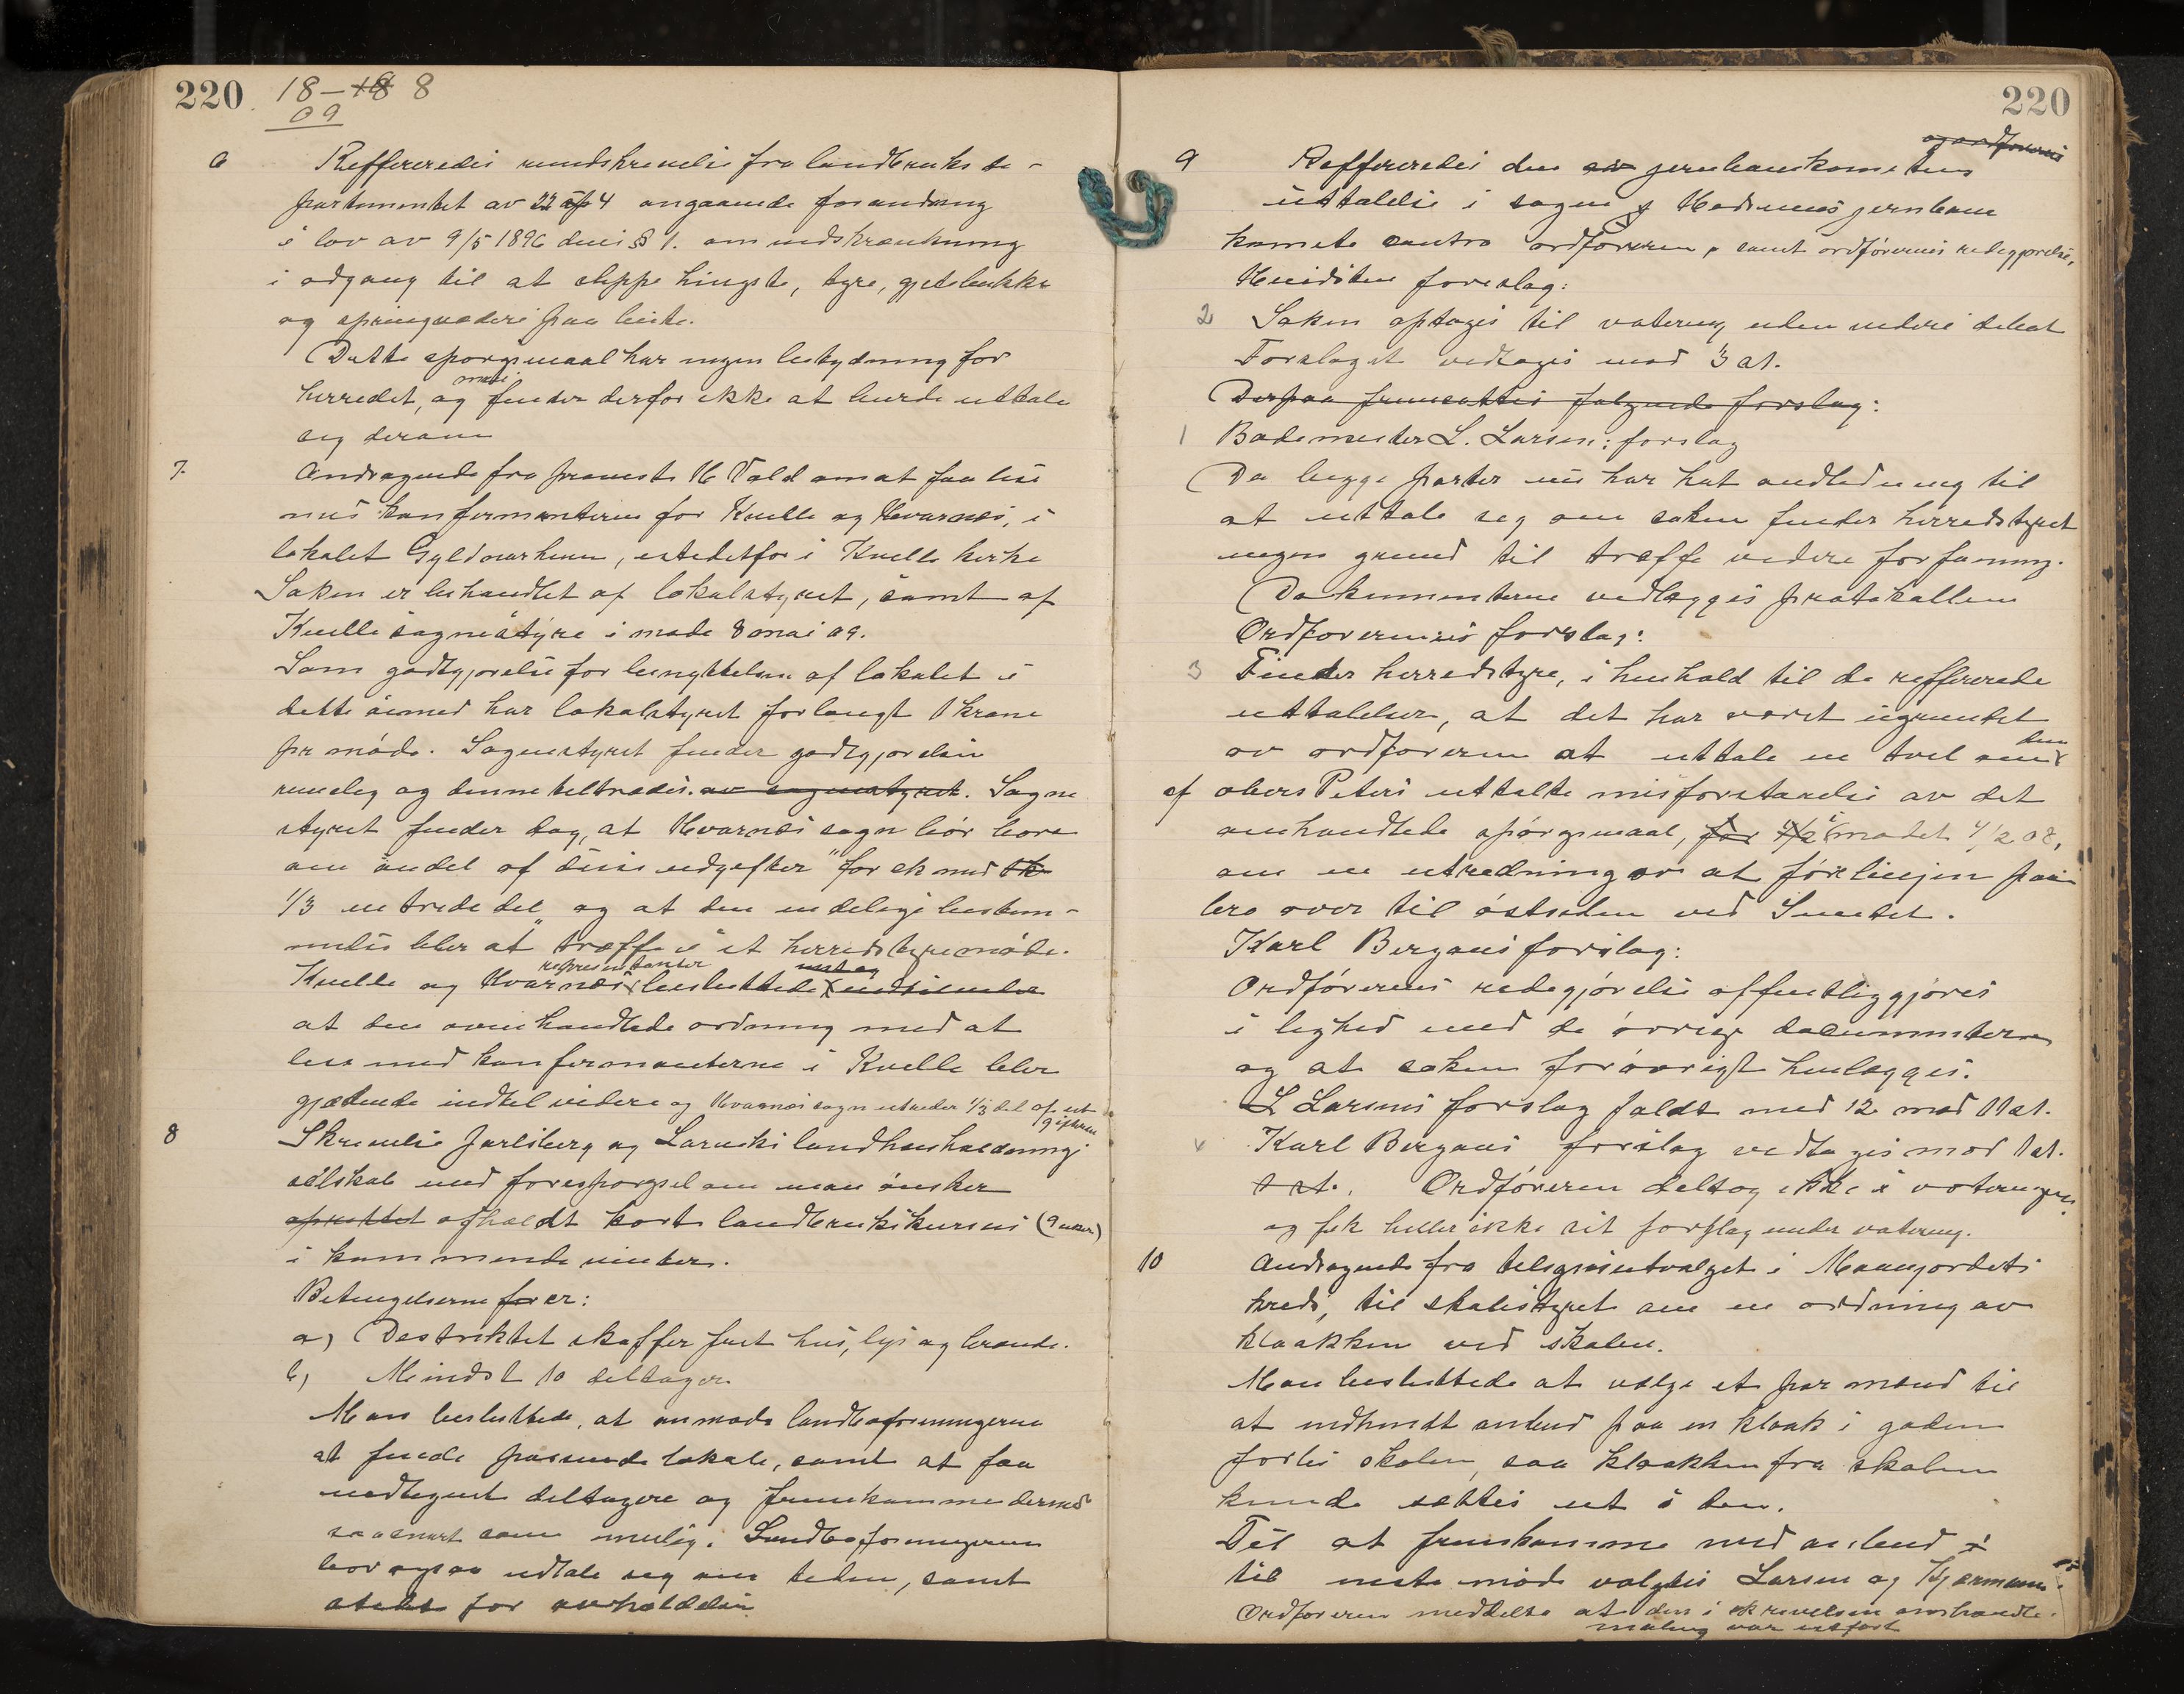 220
18–18 8
09
6 Reffereredes rundskrivelse fra landbruks de-
partementet av 22 4 angaaende forandring
i lov av 9/5 1896 dens § 1. om indskrænkning
i adgang til at slippe hingste, tyre, gjetebukke
og springvædere paa beite.
Dette sporgsmaal har ingen betydning for
herredet, og man finder derfor ikke at burde uttale
sig derom
7. Andragende fra provst H Vold om at faa læse
med konfirmanterne for Kvelle og Hvarnes, i
lokalet Gyldnarheim, istedetfor i Kvelle kirke
Saken er behandlet af lokalstyret, samt af
Kvelle sognestyre i møde 8 mai 09.
Som godtgjorelse for benyttelsen af lokalet i
dette øiemed har lokalstyret forlangt 1 krone
pr møde. Sognestyret finder godtgjorelsen
rimelig og denne tiltrædes. av sognestyret. Sogne
styret finder dog, at Hvarnes sogn bør bære
en andel af disse udgifter for ek med
1/3 en trededel og at den endelige bestem-
melse blir at træffe i et herredstyremøde.
Kvelle og Hvarnes representanter besluttede
at den omhandlede ordning med at
læse med konfirmanterne i Kvelle blir
gjældende indtil videre og Hvarnes sogn utreder 1/3 del af ut
gifterne
8 Skrivelse Jarlsberg og Larviks landhusholdnings
selskab med foresporgsel om man ønsker
oprettet afholdt kort landbrukskursus (9 uker)
i kommende vinter.
Betingelserne for er:
a) Destriktet skaffer frit hus, lys og brænde.
b) Mindst 10 deltagere
Man besluttede, at anmode landboforeningerne
at finde passende lokale, samt at faa
indtegnet deltagere og fremkomme dermed
saasnart som mulig. Landboforeningerne
bør ogsaa udtale sig om tiden, samt
stedet for avholdelsen
220
og ordforeres
9 Reffereredes den jernbanekomiteens
uttalelse i sagen Hedrums jernbane
komite contra ordføreren, samt ordførerens redegjørelse,
Hvidsten foreslag:
2 Saken optages til votering uden videre debat
Forslaget vedtages mod 3 st.
Derpaa fremsattes følgende forslag:
1 Bademester L. Larsens forslag
Da begge parter nu har hat andledning til
at uttale seg om saken finder herredstyret
ingen grund til træffe videre forføining.
Dokumenterne vedlægges protokollen
Ordførerens forslag:
3 Finder herredstyre, i henhold til de reffererede
uttalelser, at det har været ugrundet
av ordføreren at uttale en tvel om den
af obers Peters uttalte misforstaaelse av det
omhandlede spørgsmaal, før 4/2 i mødet 4/2 08,
om en utredning av at føre linjen paa
bro over til østsiden ved Sundet.
Karl Bergans forslag:
Ordførerens redegjørelse offentliggjøres
i lighed med de øvrige documenter
og at saken forøvrigt henlægges.
L Larsens forslag faldt med 12 mod 11 st.
Karl Bergans forslag vedtages mod 1 st.
1 st. Ordføreren deltog ikke i voteringen
og fek heller ikke sit forslag under votering.
10 Andragende fra tilsynsutvalget i
kreds, til skolestyret om en ordning av
kloakken ved skolen.
Man besluttede at vælge et par mænd til
at indhente anbud paa en kloak i gaden
forbi skolen, saa kloakken fra skolen
kunde sættes ut i den.
Til at fremkomme med anbud
til næste møde valgtes Larsen og Hjermann.
Ordføreren meddelte at den i skrivelsen omhandle
maling var utført